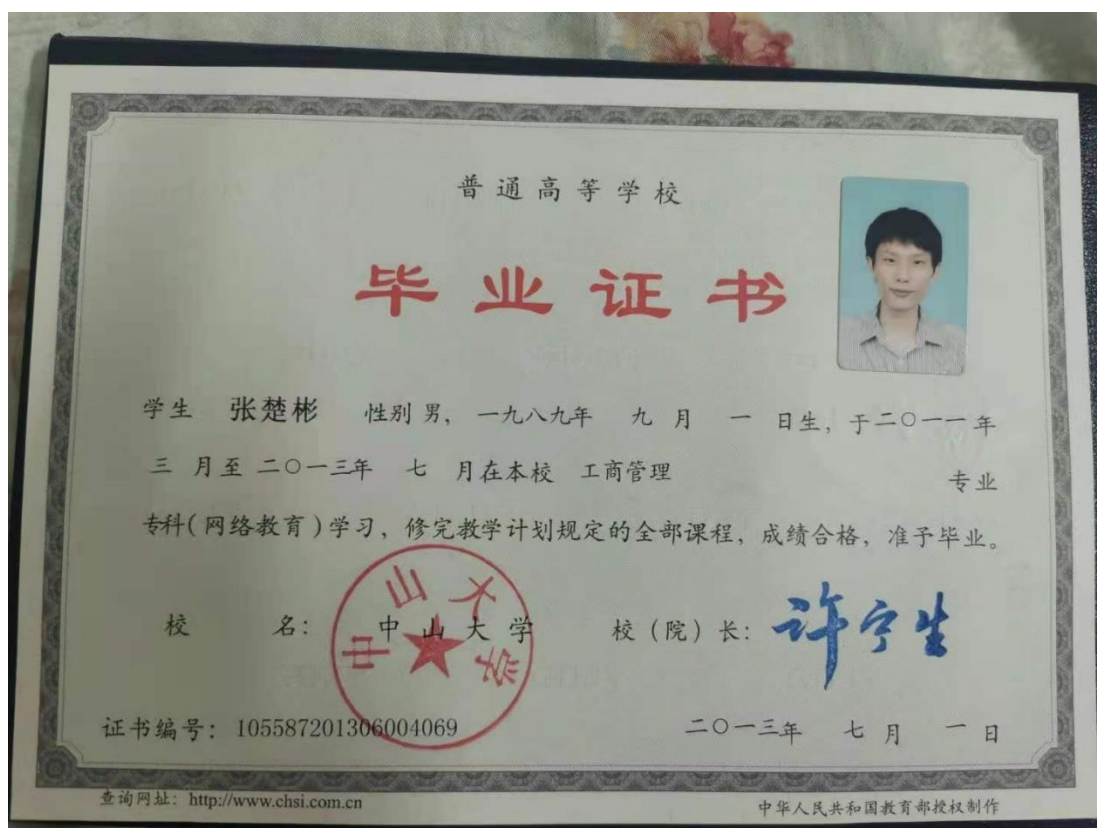 普通高等学校
毕业证书
学生 张楚彬 性别 男， 一九八九年 九 月 一 日生，于二〇一一年
三 月至 二〇一三年 七 月在本校 工商管理 专业
专科（网络教育）学习，修完教学计划规定的全部课程，成绩合格，准予毕业。
校 名： 中山大学 校（院）长： 许宁生
中山大学
证书编号：105587201306004069 二〇一三年 七 月 一 日
查询网址：http://www.chsi.com.cn 中华人民共和国教育部授权制作